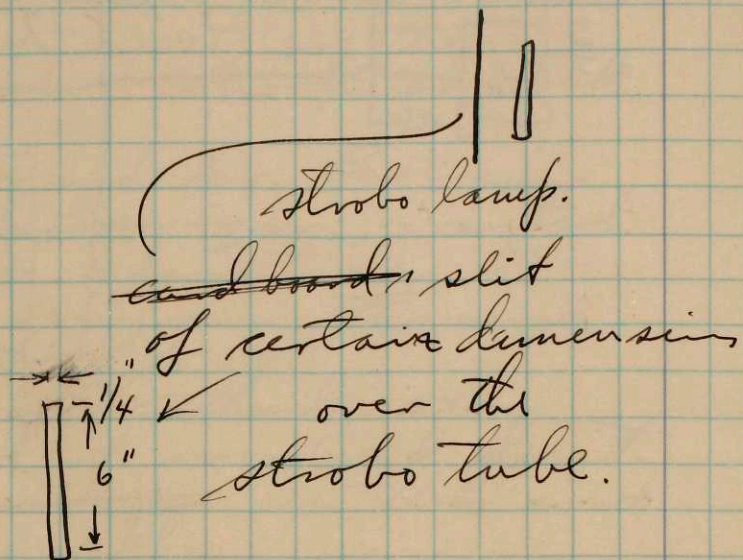 strobo lamp.
card board slit
of certain dimensions
over the
strobo tube.
1/4"
6"